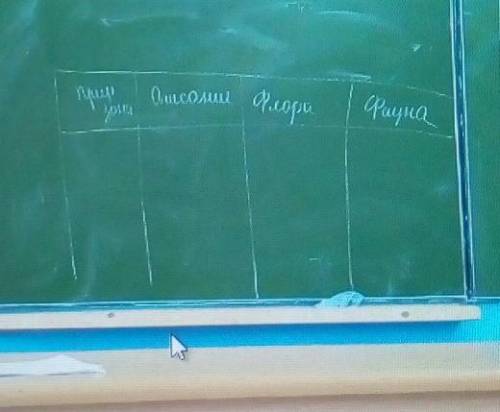 Прир Описание Флора Фауна
зона